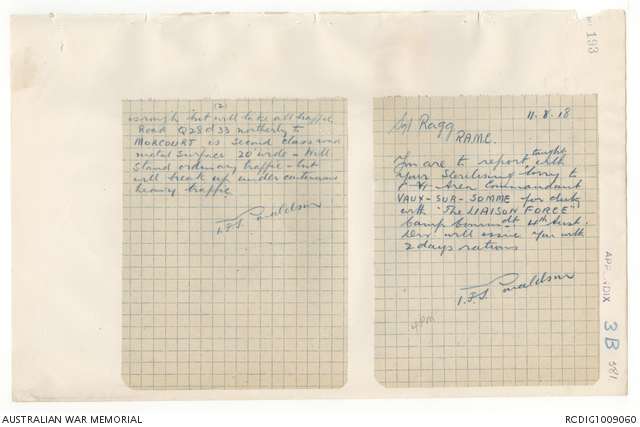 (2)
is rough but will take all traffic
Road Q28d33 northerly to
MORCOURT is second class road
metal surface 20' wide - Will
stand ordinary traffic - but
will break up under continuous
heavy traffic
T.F.S. Donaldson
193
11.8.18
Sgt Ragg
RAMC.
You are to report tonight with
your Sterilising lorry to
Area Commandant
VAUX-SUR-SOMME for duty
with "The LIAISON FORCE"
Camp Commdt 4th Aust.
Div. will issue you with
2 days rations
T.F.S. Donaldson
4PM
APPENDIX
3B
581
AUSTRALIAN WAR MEMORIAL
RCDIG1009060